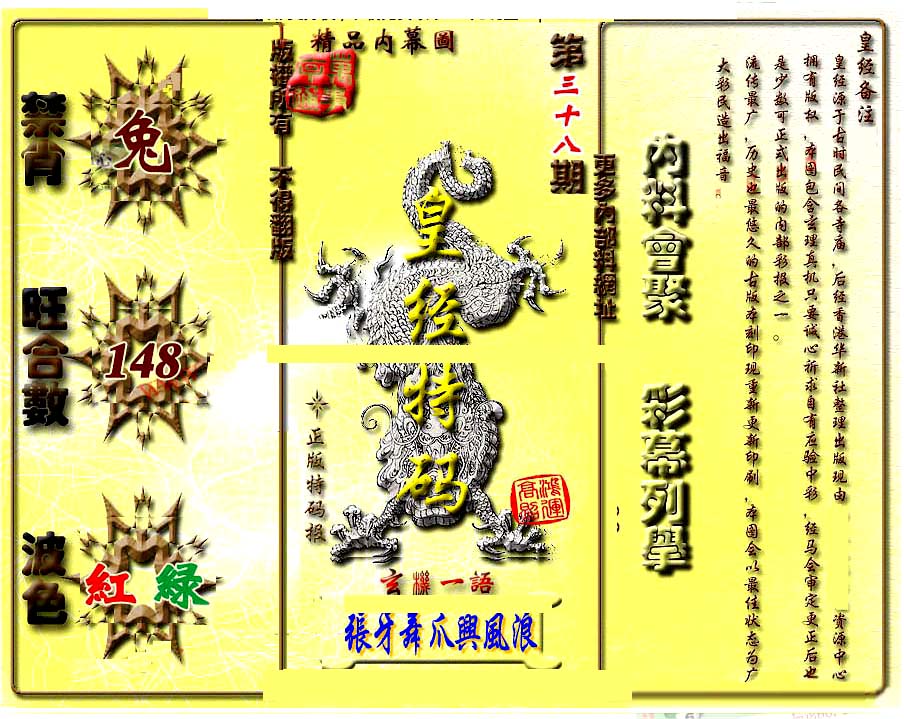 皇经备注
皇经源于古时民间各寺庙，后经香港华新社整理出版现由
资源中心
拥有版权，本图包含玄理真机只要诚心祈求自有应验中彩，经马会审定更正后也
是少数可正式出版的内部彩报之一。
流传最广，历史也最悠久的古版本刻印现重新更新印刷，本图会以最佳状态为广
大彩民造出福音
內料會聚
彩幕列舉
更多內部料網址
第三十八期
精品内幕圖
版權所有 不得翻版
皇经特码
正版特码报
鴻運高照
玄機一語
張牙舞爪興風浪
禁肖
兔
旺合數
148
波色
紅 緑